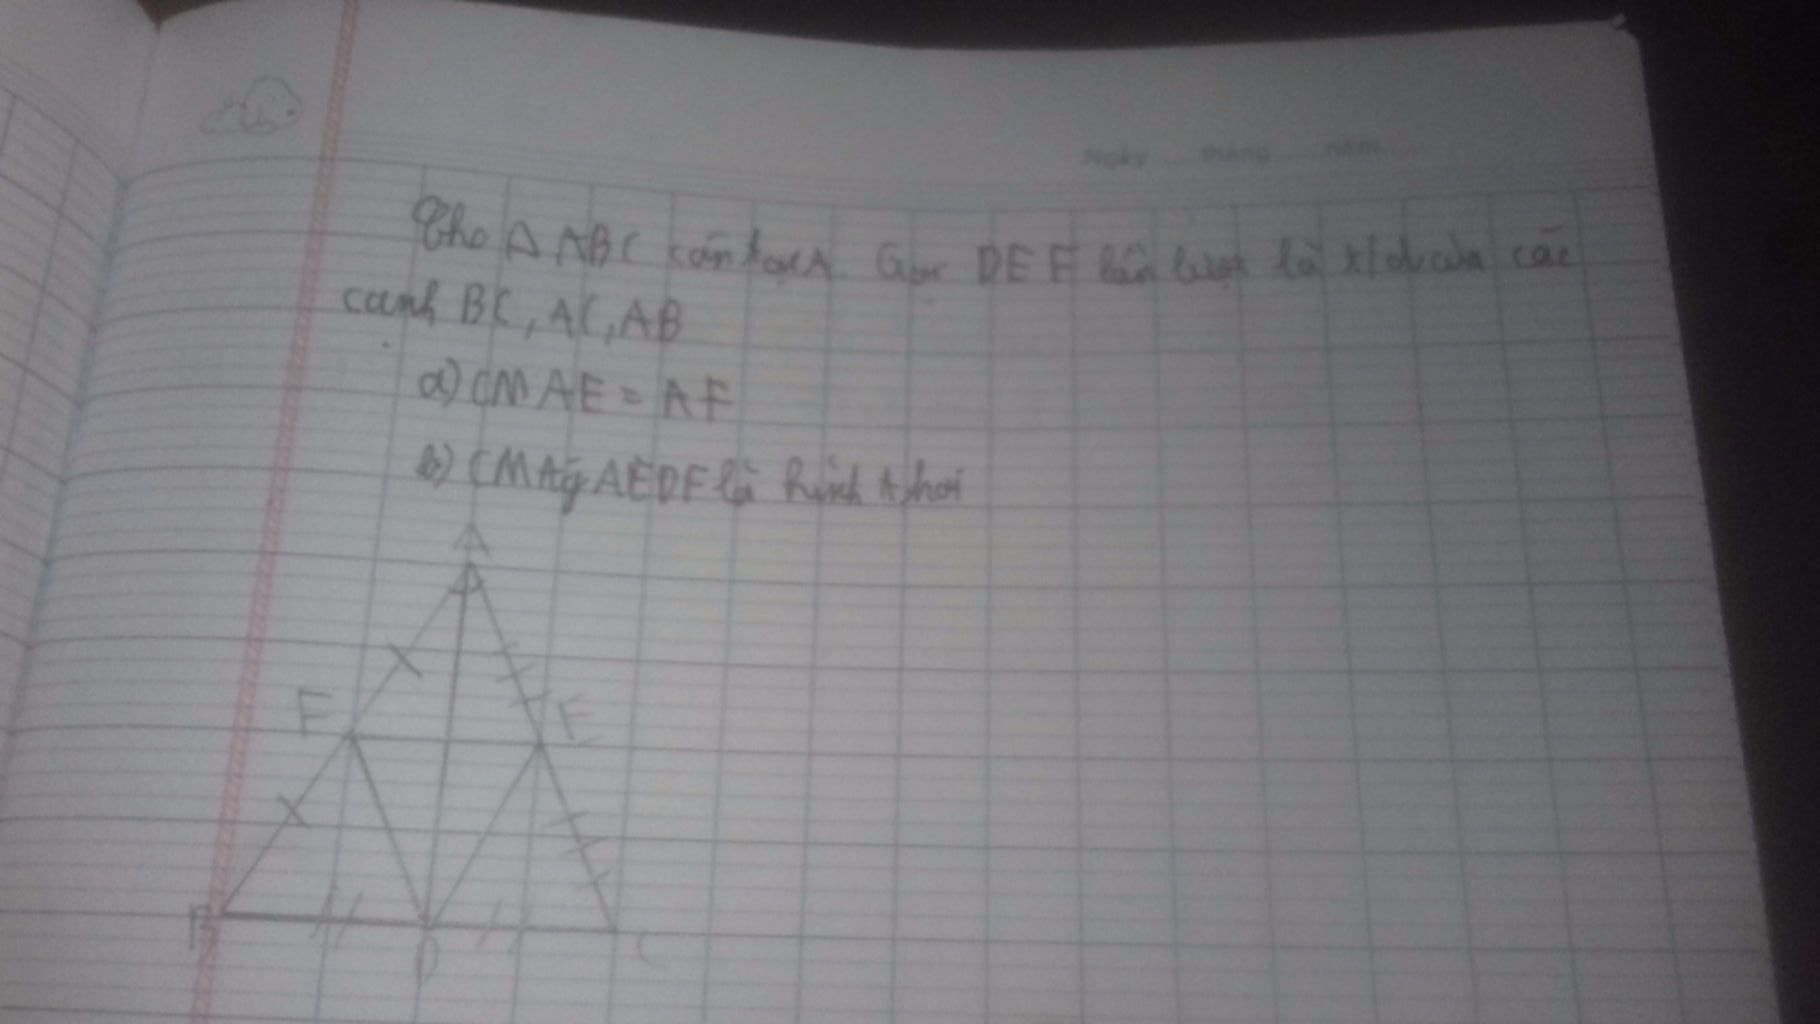 Ngày ..... tháng ..... năm .....
Cho Δ ABC cân tại A. Gọi D E F lần lượt là t/đ của các
cạnh BC, AC, AB
a) CM AE = AF
b) CM tứg AEDF là hình thoi
A
F E
B D C